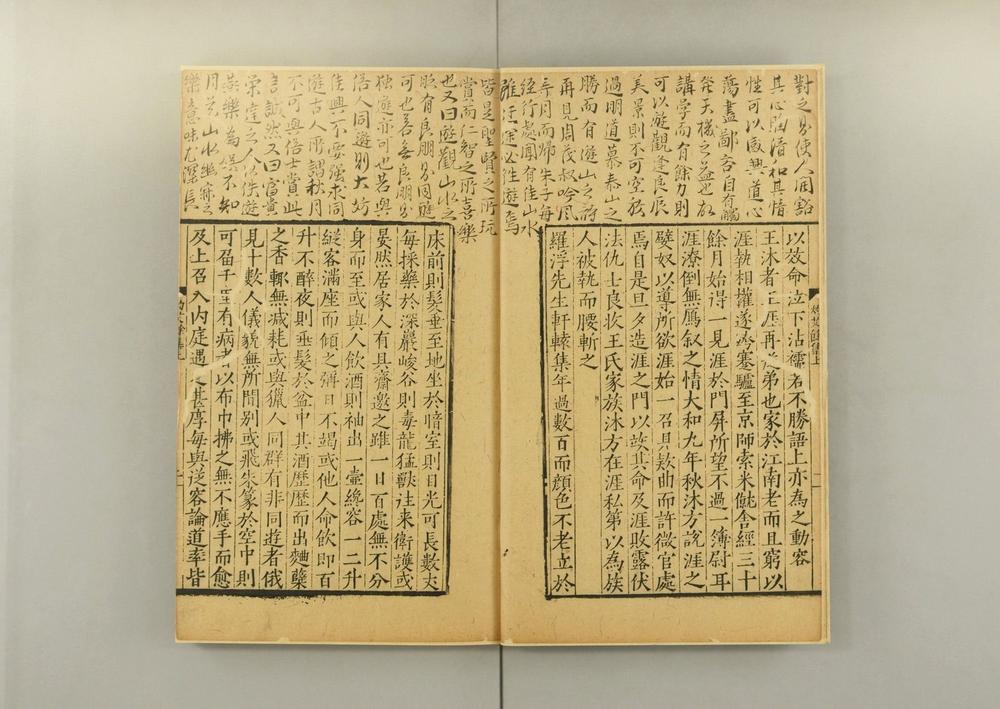 對之易使人開豁
其心胸清和其情
性可以感興道心
蕩盡鄙吝自有觸
發天機之益也故
講學而有餘力則
可以遊觀逢良辰
美景則不可空放
過明道慕泰山之
勝而有遊山之詩
再見周茂叔吟風
弄月而歸朱子每
經行處聞有佳山水
雖迂途必往遊焉
皆是聖賢之所玩
賞而仁智之所喜樂
也又曰遊觀山水之
際有良朋與同遊
可也若無良朋則
独遊亦可也若與
俗人同遊則大妨
佳興不要強求同
遊古人所謂秋月
不可與俗士賞此
言誠然又曰富貴
榮達之人佚遊
燕樂為娯不知
月花山水幽寂之
樂意味尤深長
以效命泣下沾襦若不勝語上亦為之動容
王沐者王涯再從弟也家於江南老而且窮以
涯執相權遂跨蹇驢至京師索米僦舍經三十
餘月始得一見涯於門屏所望不過一簿尉耳
涯潦倒無鴈叙之情大和九年秋沐方說涯之
嬖奴以導所欲涯始一召具欵曲而許微官處
焉自是旦夕造涯之門以竢其命及涯敗露伏
法仇士良收王氏家族沐方在涯私第以為族
人被執而腰斬之
羅浮先生軒轅集年過數百而顏色不老立於
床前則髮垂至地坐於暗室則目光可長數丈
每採藥於深巖峻谷則毒龍猛獸往來衛護或
晏然居家人有具齋邀之雖一日百處無不分
身而至或與人飲酒則袖出一壷纔容一二升
縱客滿座而傾之彌日不竭或他人命飲即百
升不醉夜則垂髮於盆中其酒歷歷而出麯蘗
之香輒無減耗或與獵人同群有非同遊者俄
見十數人儀貌無所間別或飛朱篆於空中則
可屆千里有病者以布巾拂之無不應手而愈
及上召入內庭遇之甚厚每與從容論道率皆